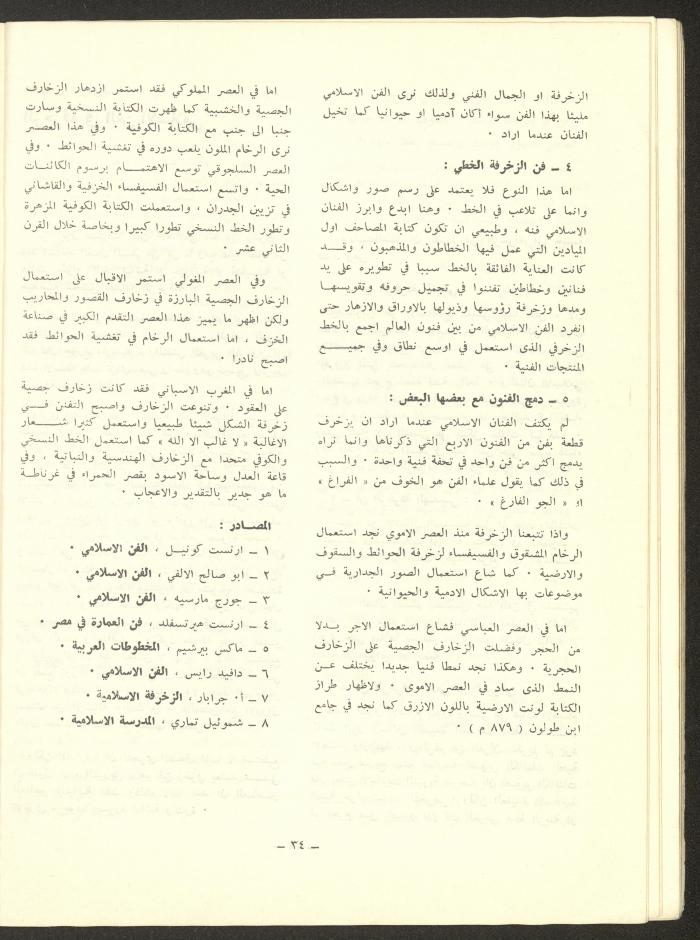 الزخرفة او الجمال الفني ولذلك نرى الفن الاسلامي
مليئا بهذا الفن سواء أكان آدميا او حيوانيا كما تخيل
الفنان عندما اراد ٠
٤ ــ فن الزخرفة الخطي :
اما هذا النوع فلا يعتمد على رسم صور واشكال
وانما على تلاعب في الخط ٠ وهنا ابدع وابرز الفنان
الاسلامي فنه ، وطبيعي ان تكون كتابة المصاحف اول
الميادين التي عمل فيها الخطاطون والمذهبون ، وقــد
كانت العناية الفائقة بالخط سببا في تطويره على يد
فنانين وخطاطين تفننوا في تجميل حروفه وتقويسهــا
ومدها وزخرفة رؤوسها وذيولها بالاوراق والازهار حتى
انفرد الفن الاسلامي من بين فنون العالم اجمع بالخط
الزخرفي الذى استعمل في اوسع نطاق وفي جميــع
المنتجات الفنية ٠
٥ ــ دمج الفنون مع بعضها البعض :
لم يكتف الفنان الاسلامي عندما اراد ان يزخرف
قطعة بفن من الفنون الاربع التي ذكرناها وانما نراه
يدمج اكثر من فن واحد في تحفة فنية واحدة ٠ والسبب
في ذلك كما يقول علماء الفن هو الخوف من « الفراغ »
او « الجو الفارغ » ٠
واذا تتبعنا الزخرفة منذ العصر الاموي نجد استعمال
الرخام المشقوق والفسيفساء لزخرفة الحوائط والسقوف
والارضية ٠ كما شاع استعمال الصور الجدارية فــي
موضوعات بها الاشكال الادمية والحيوانية ٠
اما في العصر العباسي فشاع استعمال الاجر بــدلا
من الحجر وفضلت الزخارف الجصية على الزخارف
الحجرية ٠ وهكذا نجد نمطا فنيا جديدا يختلف عــن
النمط الذى ساد في العصر الاموى ٠ ولاظهار طراز
الكتابة لونت الارضية باللون الازرق كما نجد في جامع
ابن طولون ( ٨٧٩ م ) ٠
اما في العصر المملوكي فقد استمر ازدهار الزخارف
الجصية والخشبية كما ظهرت الكتابة النسخية وسارت
جنبا الى جنب مع الكتابة الكوفية ٠ وفي هذا العصــر
نرى الرخام الملون يلعب دوره في تغشية الحوائط ٠ وفي
العصر السلجوقي توسع الاهتمــام برسوم الكائنــات
الحية ٠ واتسع استعمال الفسيفساء الخزفية والقاشاني
في تزيين الجدران ، واستعملت الكتابة الكوفية المزهرة
وتطور الخط النسخي تطورا كبيرا وبخاصة خلال القرن
الثاني عشر ٠
وفي العصر المغولي استمر الاقبال على استعمال
الزخارف الجصية البارزة في زخارف القصور والمحاريب
ولكن اظهر ما يميز هذا العصر التقدم الكبير في صناعة
الخزف ، اما استعمال الرخام في تغشية الحوائط فقد
اصبح نادرا ٠
اما في المغرب الاسباني فقد كانت زخارف جصية
على العقود ٠ وتنوعت الزخارف واصبح التفنن فــي
زخرفة الشكل شيئا طبيعيا واستعمل كثيرا شــعار
الاغالبة « لا غالب الا الله » كما استعمل الخط النسخي
والكوفي متحدا مع الزخارف الهندسية والنباتية ، وفي
قاعة العدل وساحة الاسود بقصر الحمراء في غرناطــة
ما هو جدير بالتقدير والاعجاب ٠
المصــادر :
١ ــ ارنست كونيــل ، الفن الاسلامي ٠
٢ ــ ابو صالح الالفي ، الفن الاسلامي ٠
٣ ــ جورج مارسيه ، الفن الاسلامي ٠
٤ ــ ارنست هيرتسفلد ، فن العمارة في مصر ٠
٥ ــ ماكس بيرشيم ، المخطوطات العربية ٠
٦ ــ دافيد رايس ، الفن الاسلامي ٠
٧ ــ أ٠ جرابار ، الزخرفة الاسلامية ٠
٨ ــ شموئيل تماري ، المدرسة الاسلامية ٠
ــ ٣٤ ــ